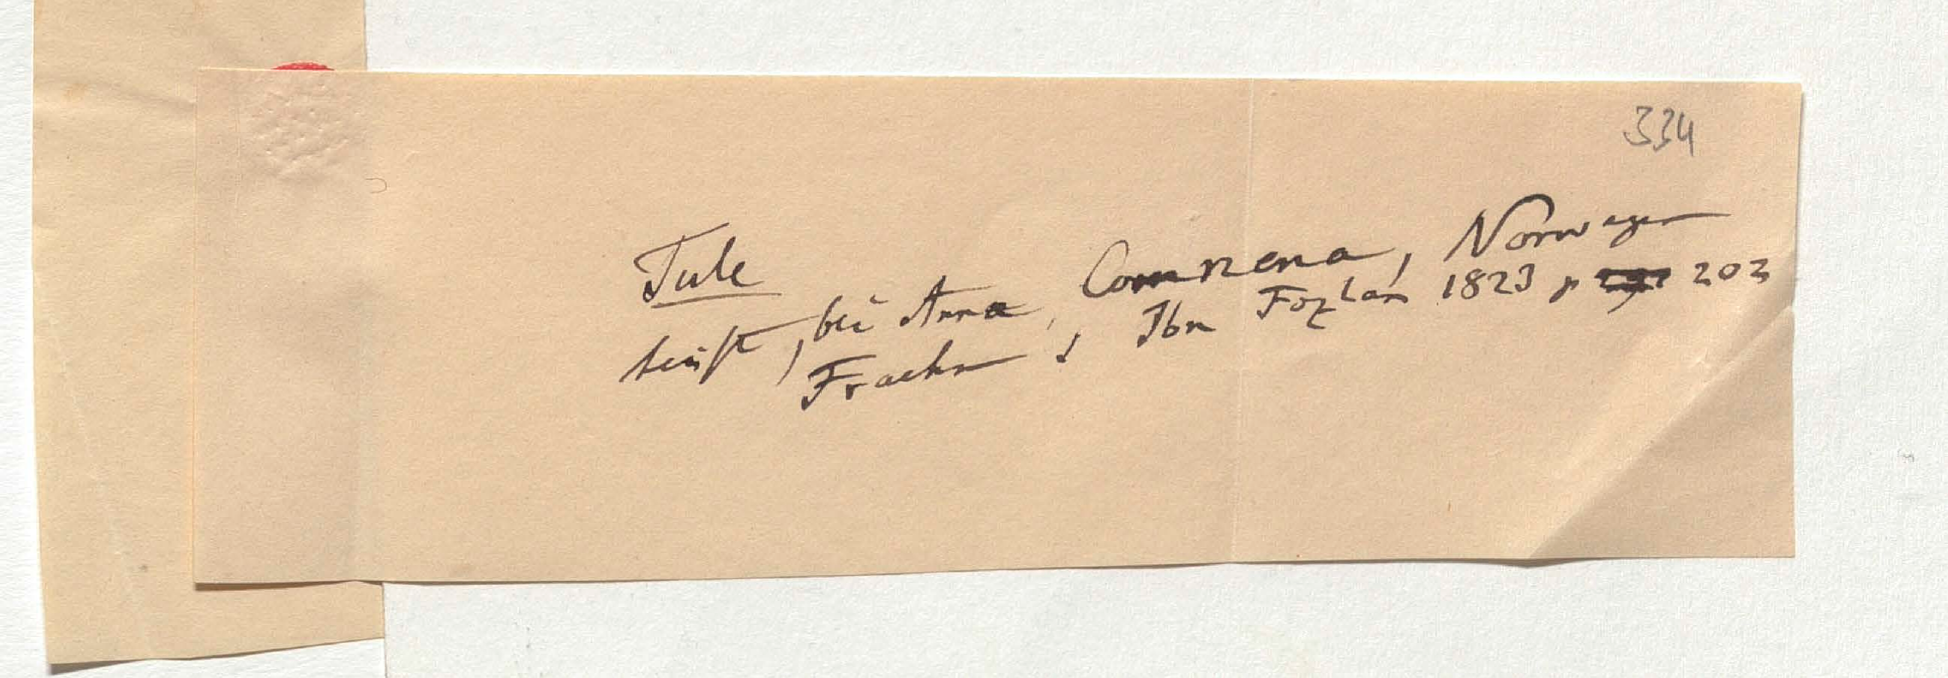 334
Tule
heißt, bei Anna Comnena, Norwegen
Fraehn, Ibn Fozlan 1823 p 202